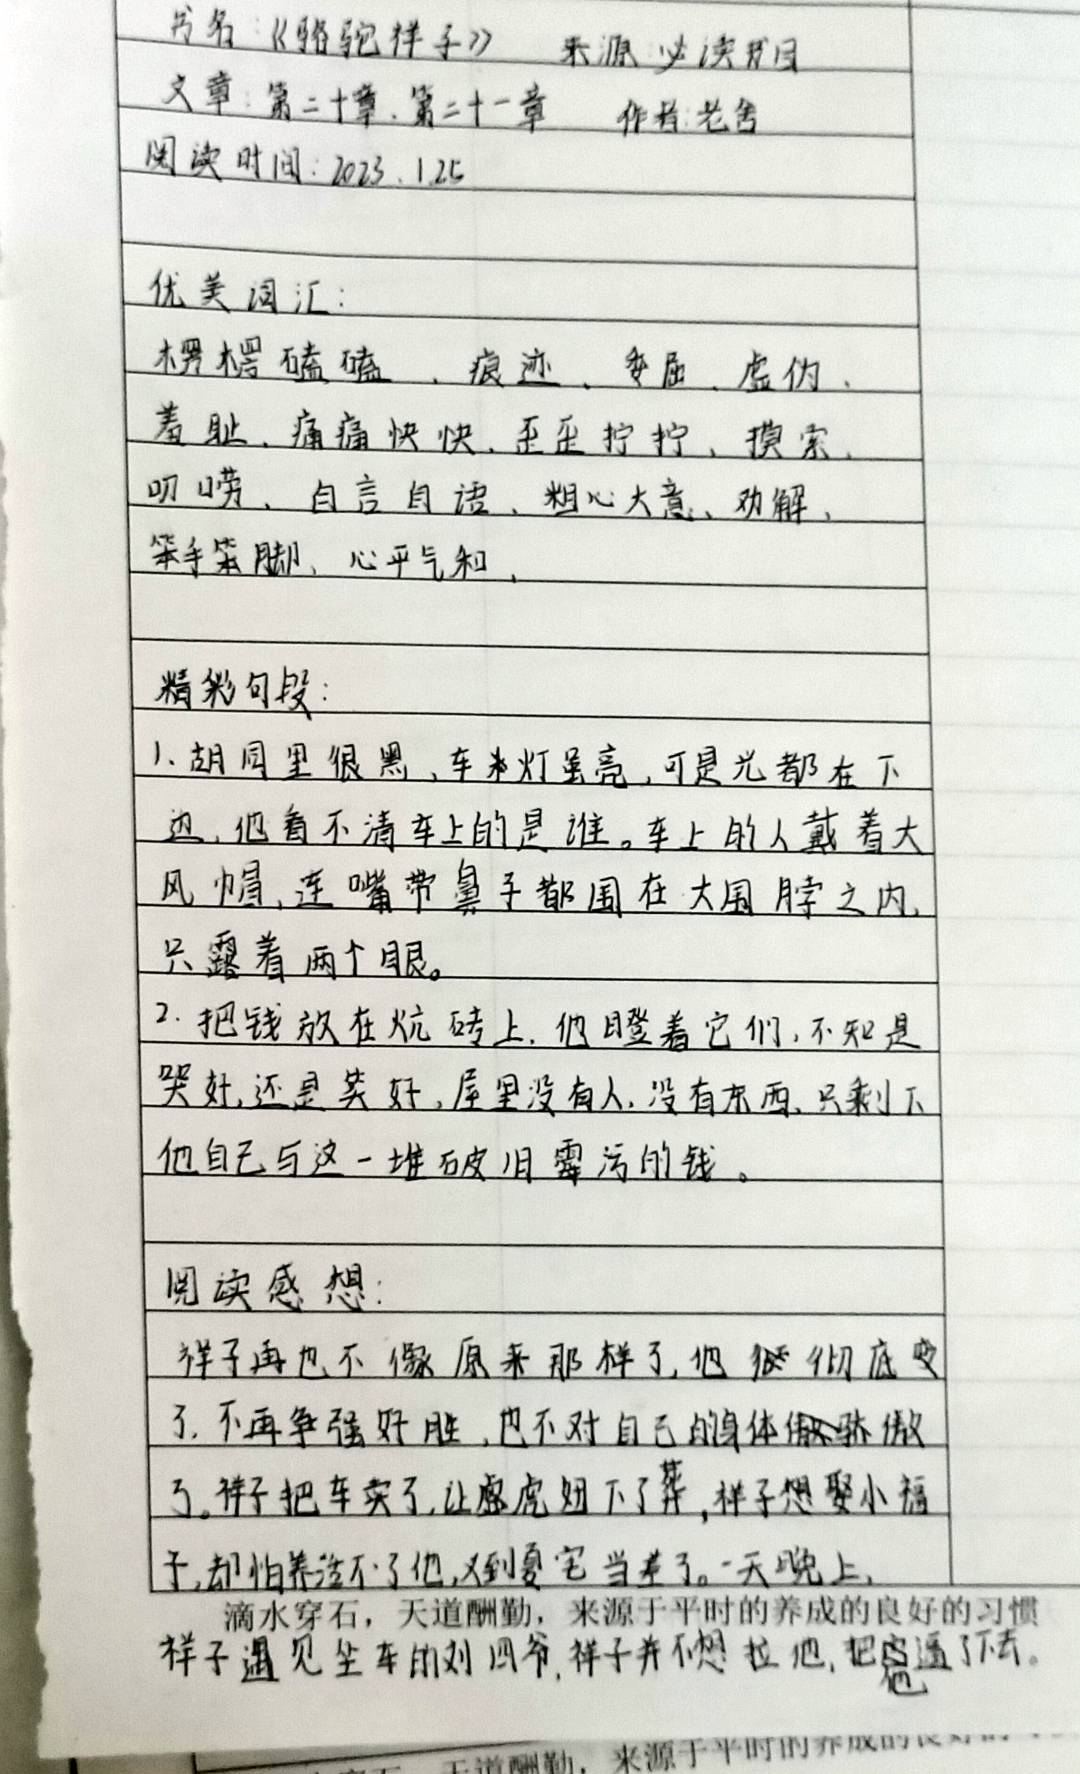 书名:《骆驼祥子》 来源:必读书目
文章:第二十章、第二十一章 作者:老舍
阅读时间:2023.1.25
优美词汇:
楞楞磕磕、痕迹、委屈、虚伪、
羞耻、痛痛快快、歪歪拧拧、摸索、
叨唠、自言自语、粗心大意、劝解、
笨手笨脚、心平气和、
精彩句段:
1.胡同里很黑,车灯虽亮,可是光都在下
边,他看不清车上的是谁。车上的人戴着大
风帽,连嘴带鼻子都围在大围脖之内,
只露着两个眼。
2.把钱放在炕砖上,他瞪着它们,不知是
哭好,还是笑好,屋里没有人,没有东西,只剩下
他自己与这一堆破旧霉污的钱。
阅读感想:
祥子再也不像原来那样了,他彻底变
了,不再争强好胜,也不对自己的身体骄傲
了。祥子把车卖了,让虎妞下了葬,祥子想娶小福
子,却怕养活不了他,又到夏宅当差了。一天晚上,
滴水穿石,天道酬勤,来源于平时的养成的良好的习惯
祥子遇见坐车的刘四爷,祥子并不想拉他,把他逼了下去。
天道酬勤,来源于平时的养成的良好的